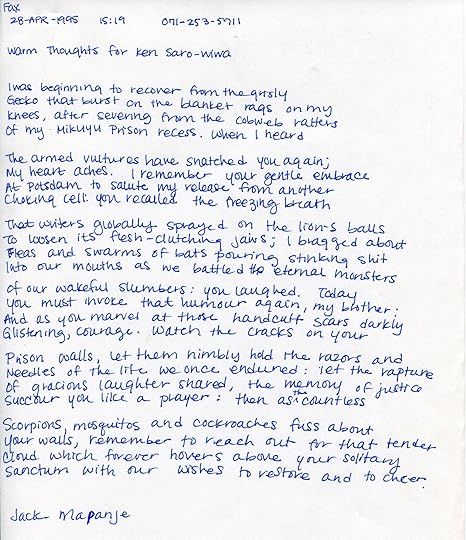 Fax
28-APR-1995 15:19 071-253-5711
Warm Thoughts for Ken Saro-Wiwa
I was beginning to recover from the grisly
Gecko that burst on the blanket rags on my
Knees, after severing from the cobweb rafters
Of my Mikuyu Prison recess. When I heard
The armed vultures have snatched you again;
My heart aches. I remember your gentle embrace
At Potsdam to salute my release from another
Choking cell: you recalled the freezing breath
That writers globally sprayed on the lion's balls
To loosen its flesh-clutching jaws; I bragged about
Fleas and swarms of bats pouring stinking shit
Into our mouths as we battled the eternal monsters
of our wakeful slumbers: you laughed. Today
you must invoke that humour again, my brother:
And as you marvel at those handcuff scars darkly
Glistening, courage. Watch the cracks on your
Prison walls, let them nimbly hold the razors and
Needles of the life we once endured: let the rapture
of gracious laughter shared, the memory of justice
Succour you like a prayer: then as the countless
Scorpions, mosquitos and cockroaches fuss about
your walls, remember to reach out for that tender
Cloud which forever hovers above your solitary
Sanctum with our wishes to restore and to cheer.
Jack Mapanje